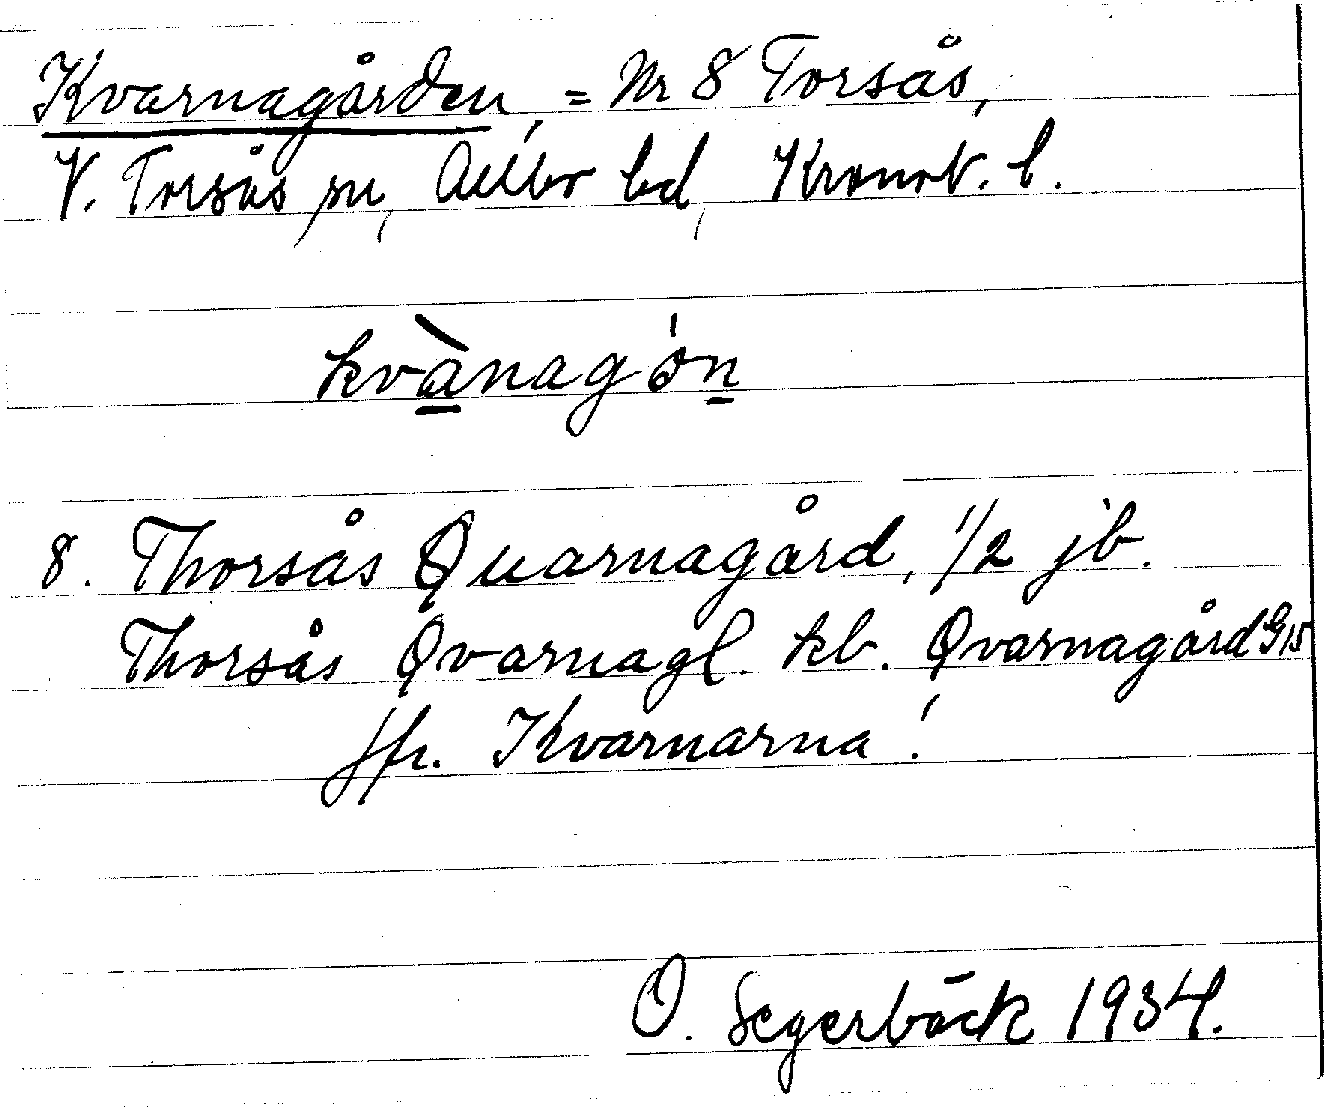 Kvarnagården, = Nr 8 Torsås,
V. Torsås sn, Allbo hd, Kronob. l.
kvànagón
8. Thorsås Quarnagård, 1/2 jb.
Thorsås Qvarnag[. kb. Qvarnagård G15
Jfr. Kvarnarna!
O. Segerbäck 1934.